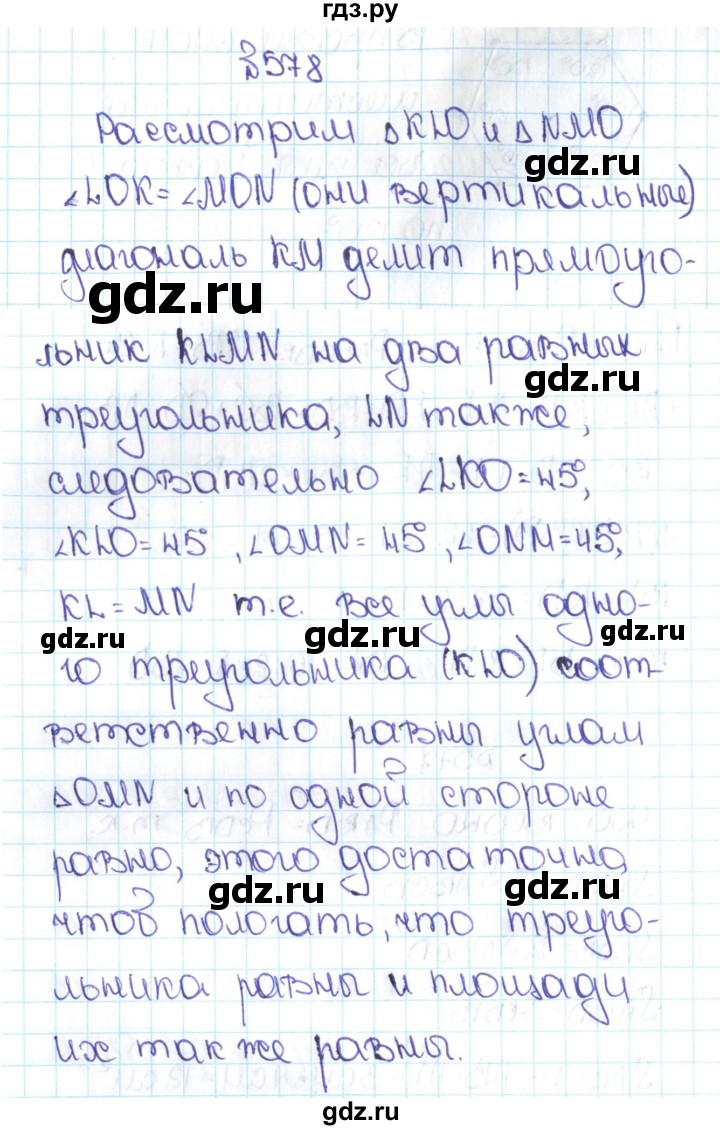 гдз.ру
№578
Рассмотрим △KLO и △NMO
gdz.ru
∠LOK=∠MON (они вертикальные)
диагональ KM делит прямоуго-
gdz.ru
льник KLMN на два равных
gdz.ru
треугольника, LN также,
следовательно ∠LKO=45°,
∠KLO=45°, ∠OMN=45°, ∠ONM=45°,
KL=MN т.е. все углы одно-
gdz.ru gdz.ru gdz.ru
го треугольника (KLO) соот-
ветственно равны углам
△OMN и по одной стороне
равно, этого достаточно,
gdz.ru gdz.ru
чтоб пологать, что треуго-
льника равны и площади
их так же равны.
gdz.ru